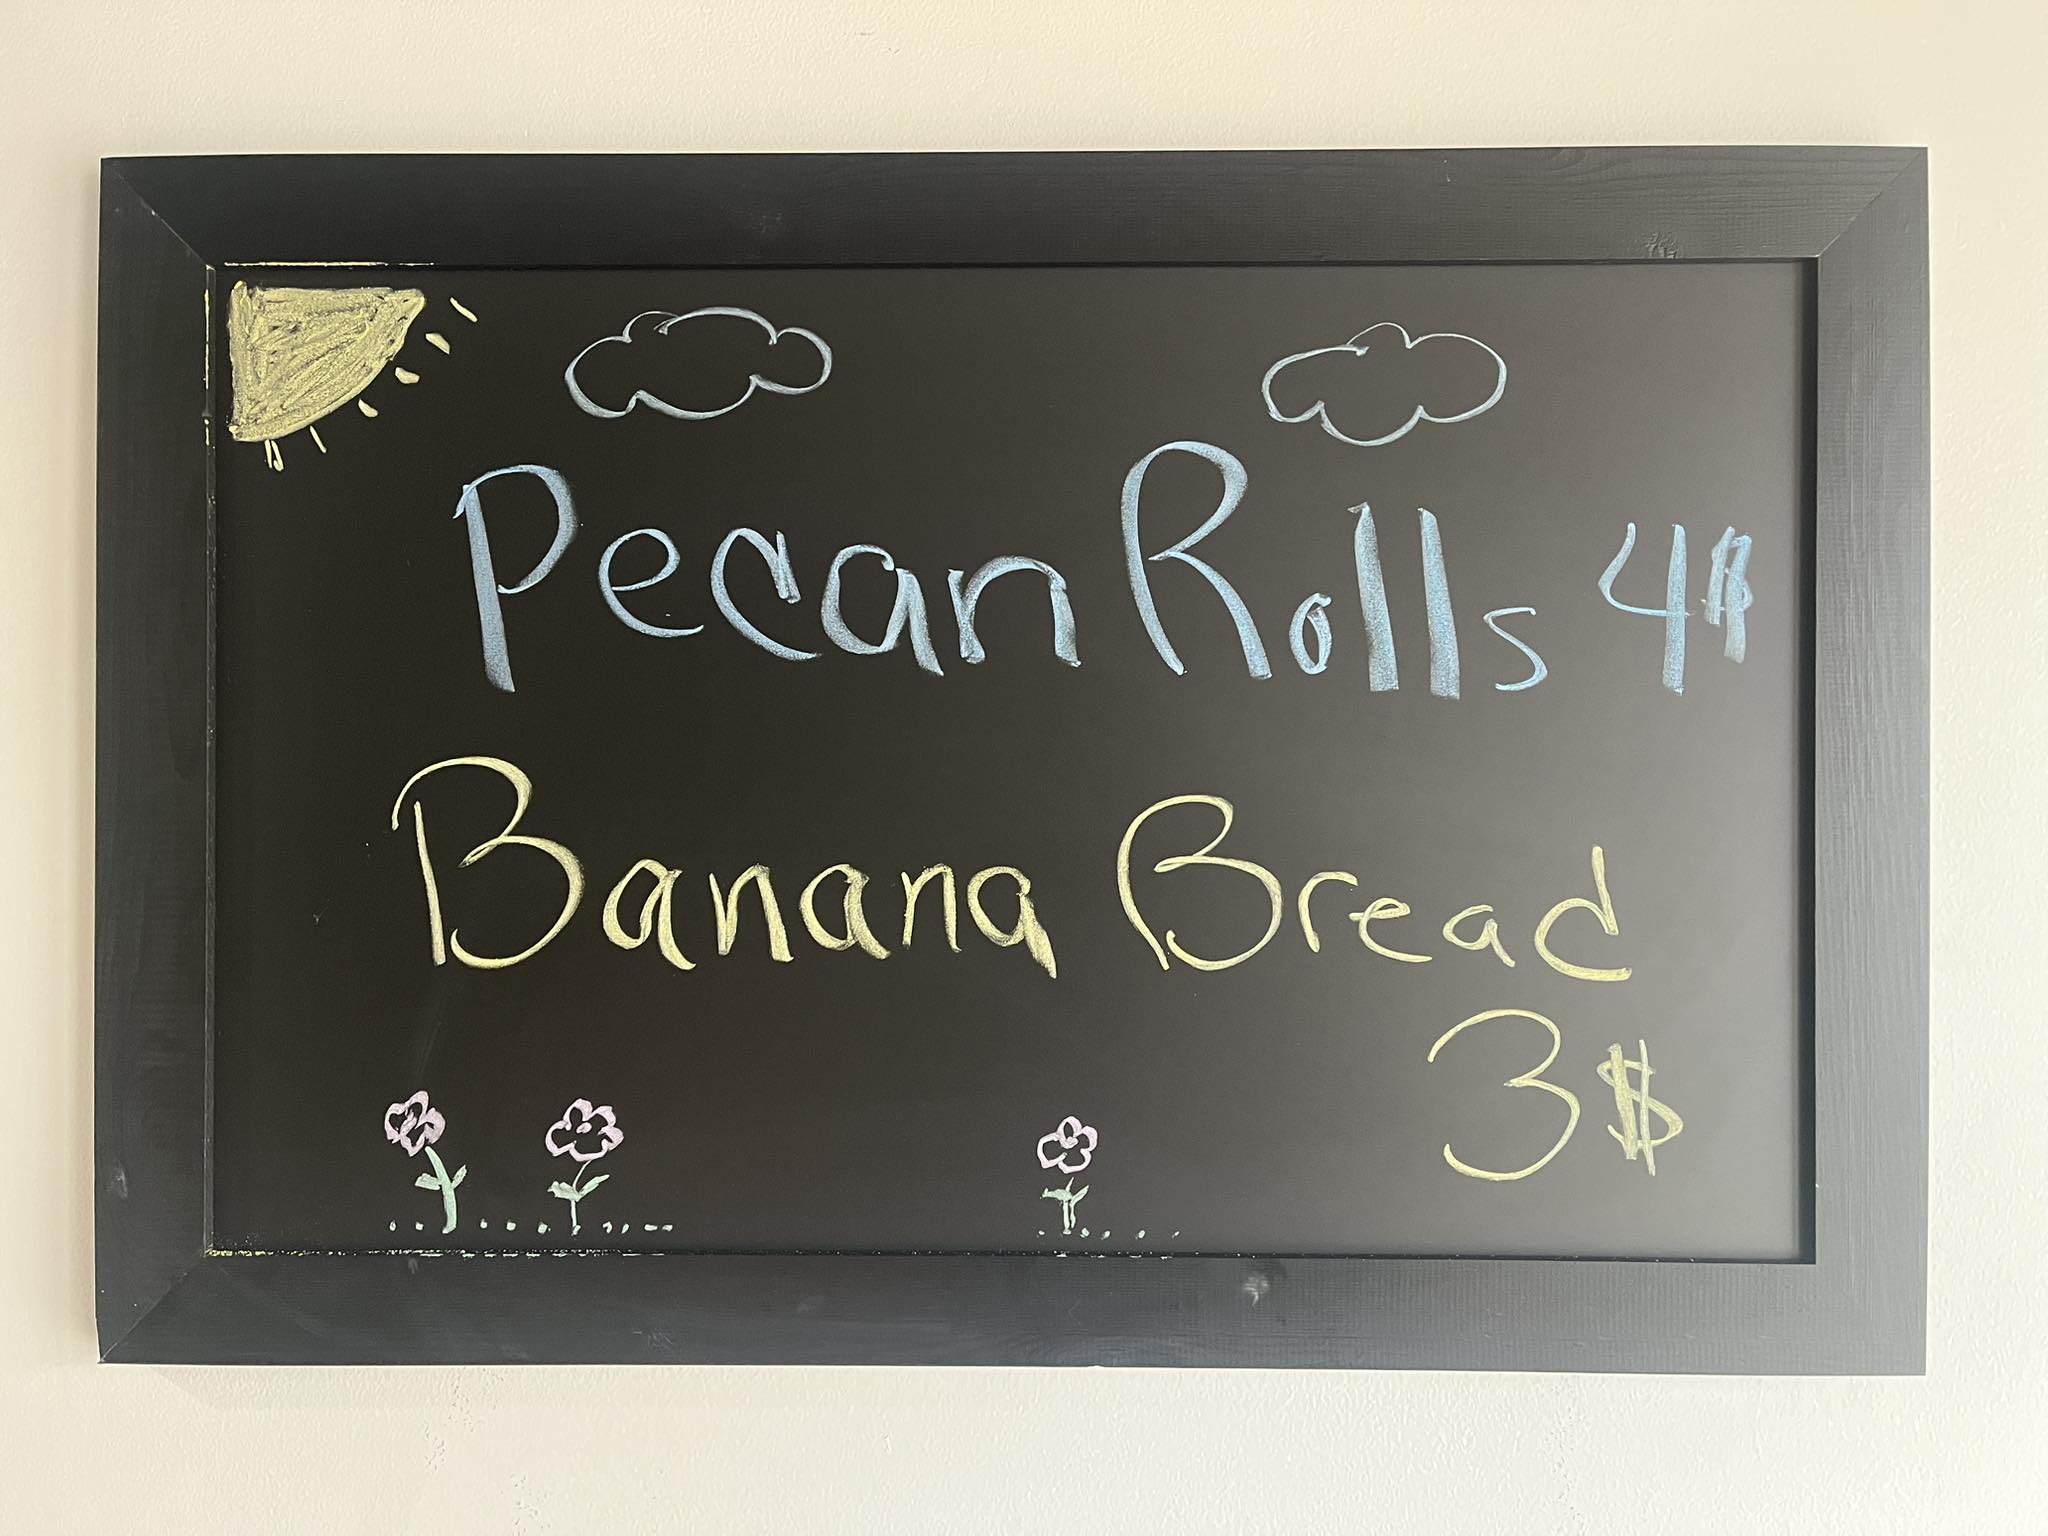 Pecan Rolls 4$
Banana Bread
3$